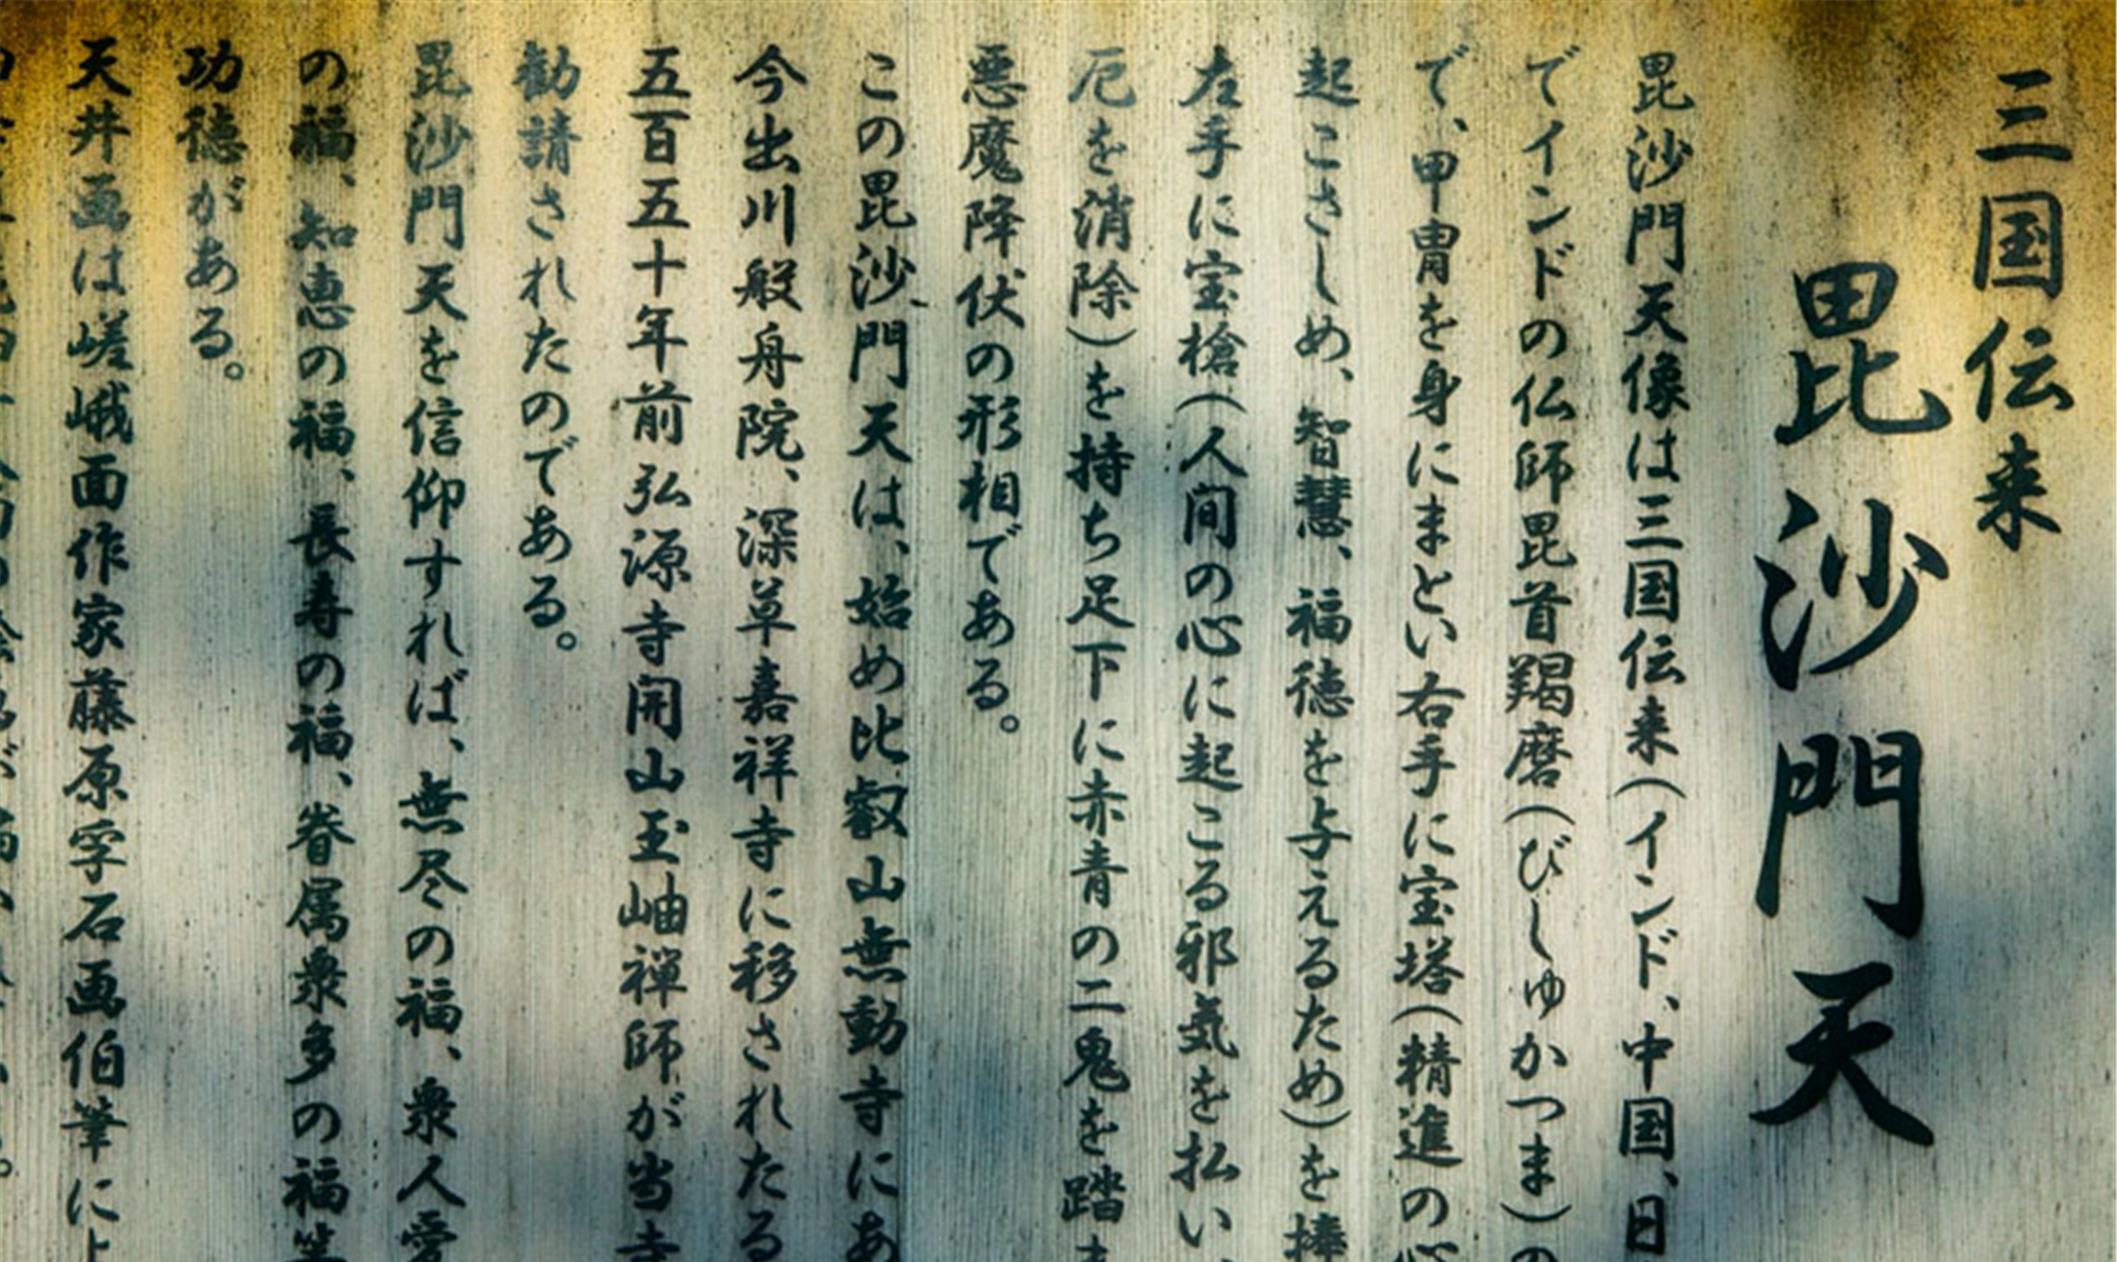 三国伝来
毘沙門天
毘沙門天像は三国伝来(インド、中国、日
でインドの仏師毘首羯磨(びしゆかつま)の
で、甲冑を身にまとい右手に宝塔(精進の心
起こさしめ、智慧、福徳を与えるため)を捧
左手に宝槍(人間の心に起こる邪気を払い、
厄を消除)を持ち足下に赤青の二鬼を踏ま
悪魔降伏の形相である。
この毘沙門天は、始め比叡山無動寺にあ
今出川般舟院、深草嘉祥寺に移されたる
五百五十年前弘源寺開山玉岫禅師が当寺
勧請されたのである。
毘沙門天を信仰すれば、無尽の福、衆人愛
の福、知恵の福、長寿の福、眷属衆多の福等
功徳がある。
天井画は嵯峨面作家藤原孚石画伯筆によ